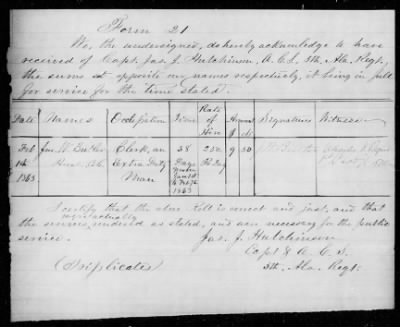 Form 21
We, the undersigned, do hereby acknowledge to have
received of Capt. Jas. J. Hutchinson, A.C.S. 5th. Ala. Regt.,
the sums set opposite our names respectively, it being in full
for service for the time stated.
Date Names Occupation Time Rate of Hire Amount Signature Witness
$ ct
Feb Jno. W. Clerk, an 38 25c 9 50
14th Extra Duty Days Per Day
1863 Man from Jan 1st to Feb 7th 1863
I certify that the above roll is correct and just, and that
were actually
the services rendered as stated, and are necessary for the public
service. Jas. J. Hutchinson
Capt & A.C.S.
(Triplicates) 5th. Ala. Regt.